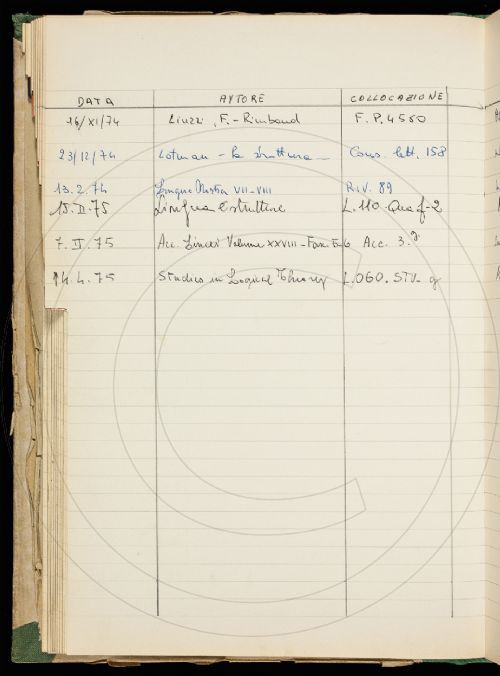 DATA AUTORE COLLOCAZIONE
16/XI/74 Liuzzi, F. - Rimbaud F.P. 4560
23/12/74 Lotman - la struttura - Cons. lett. 158
13.2.74 Lingua Nostra VII-VIII RIV. 89
15.II.75 Lingua e strutture L. 110
7. .75 Acc. Lincei Volume XXVIII - Acc. 3.
14.4.75 Studies in Logical Theory L.060. STU-